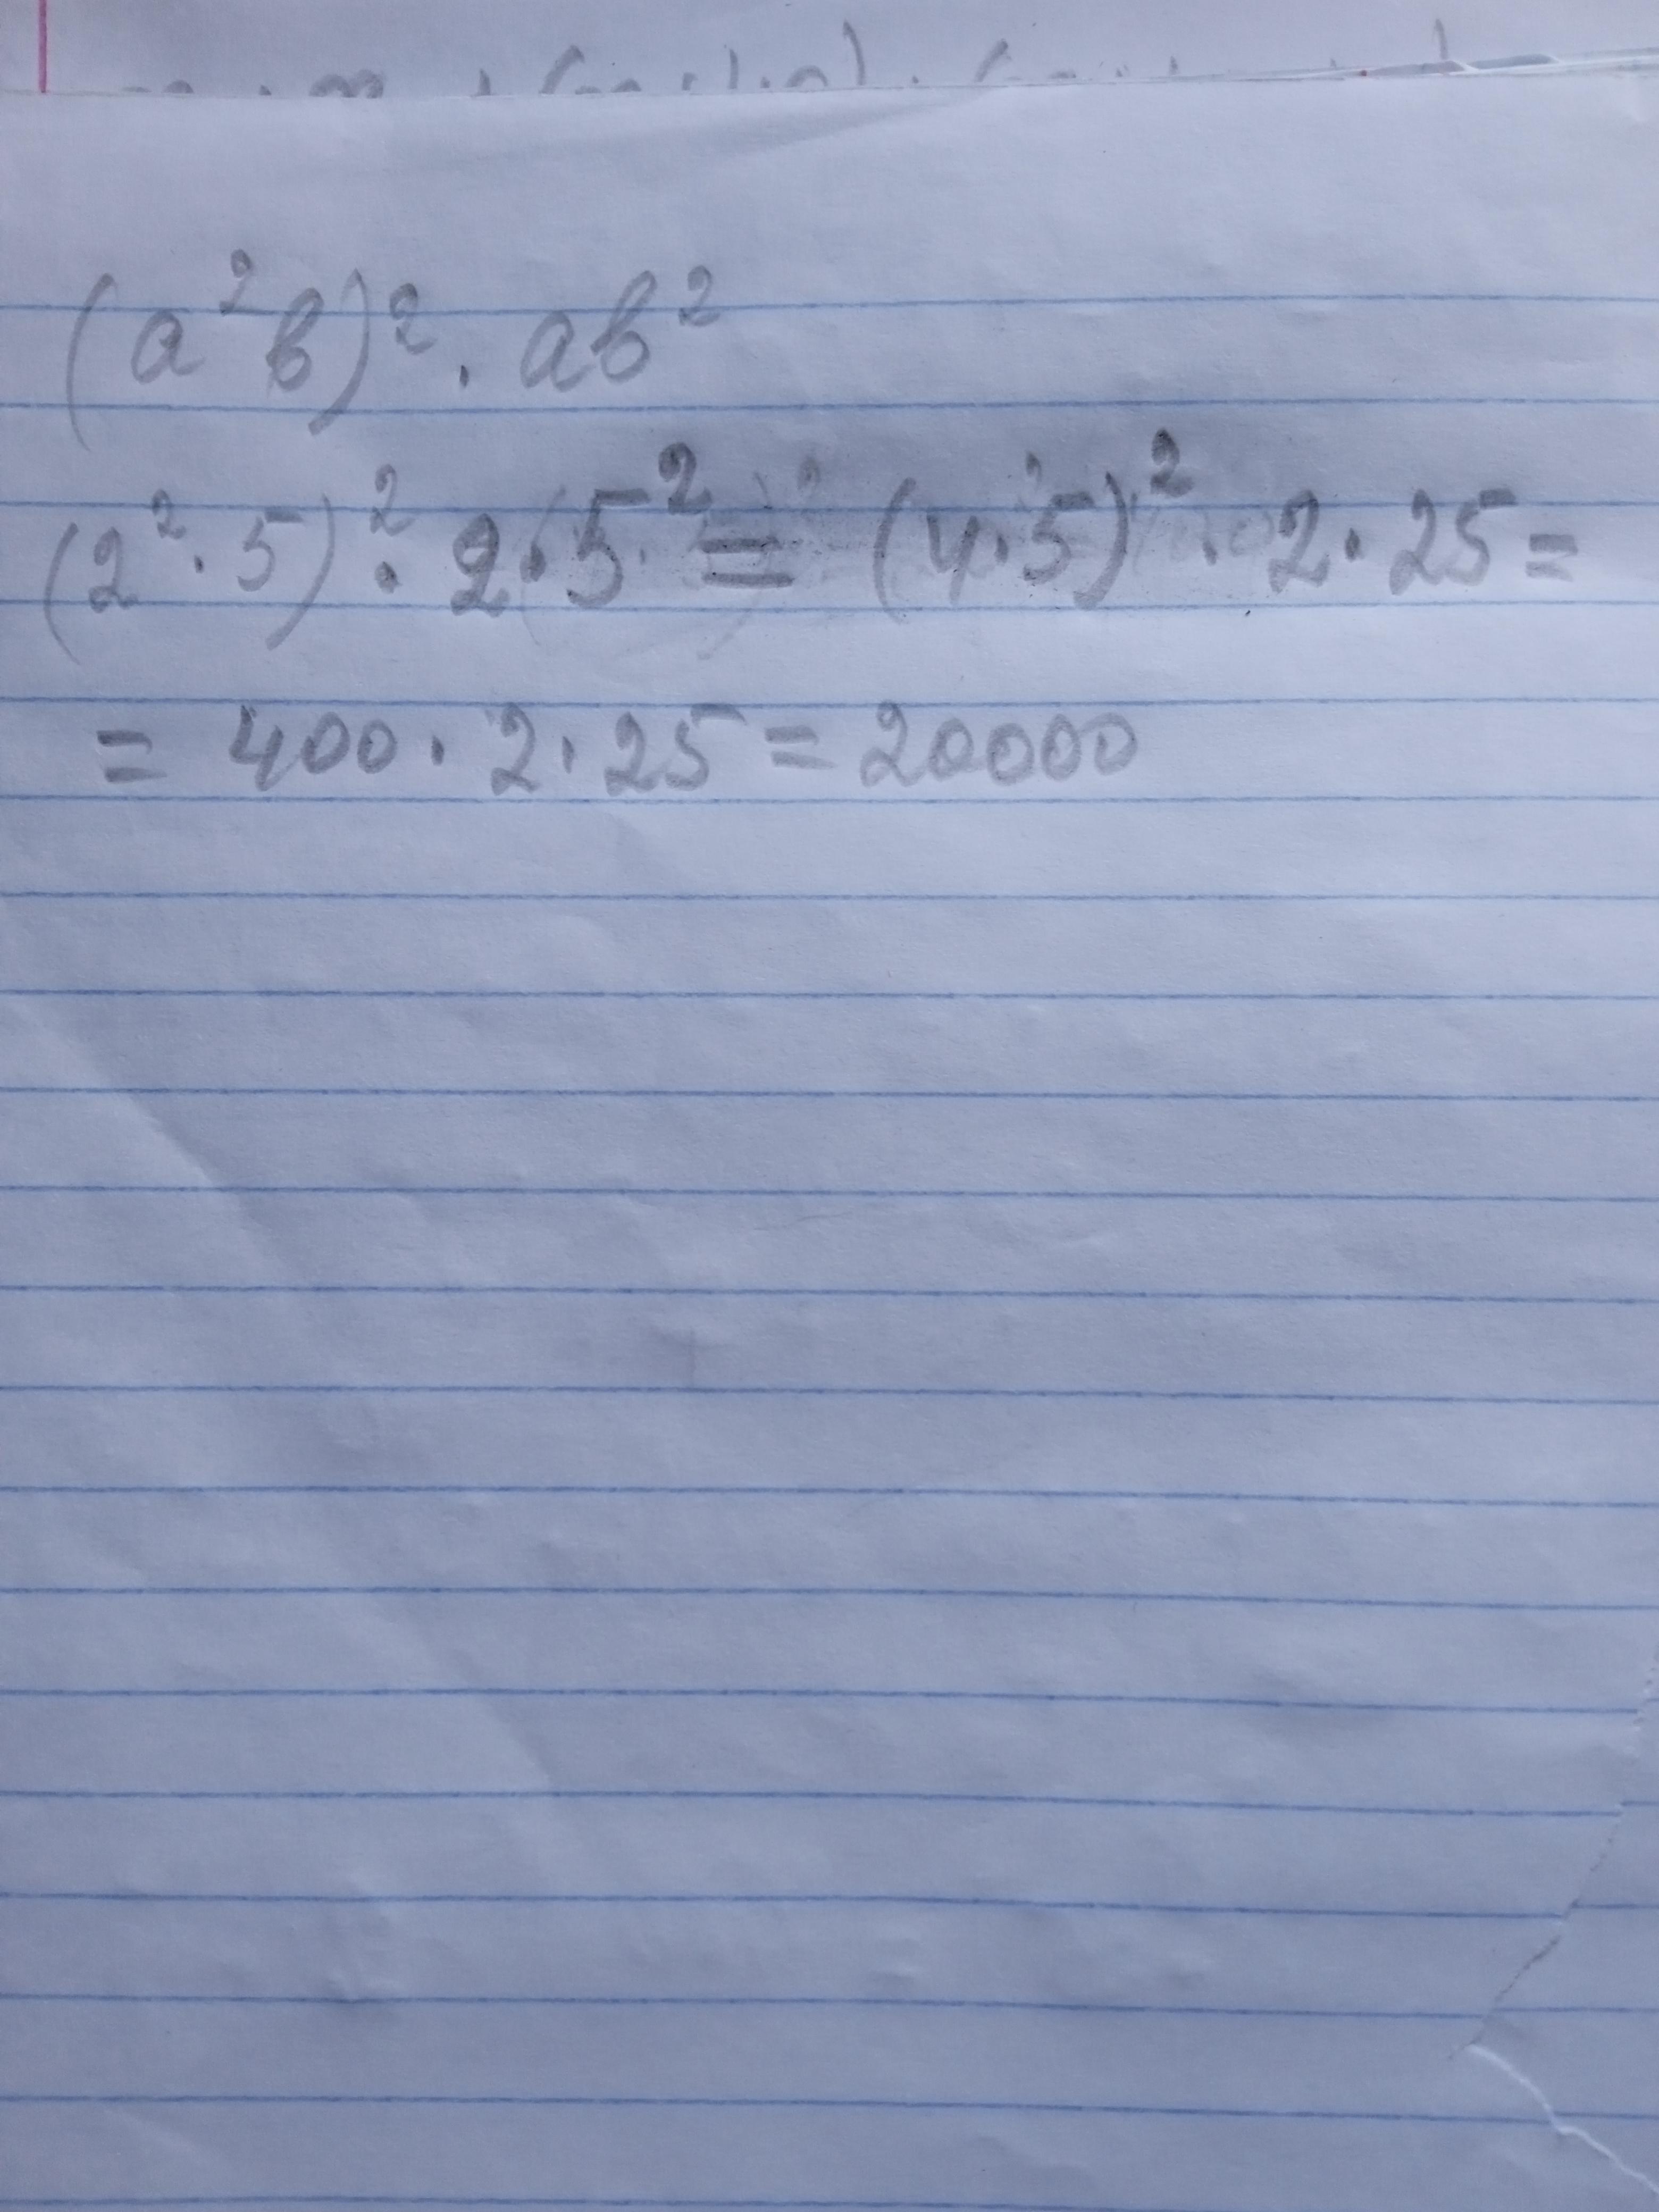 (a²b)² · ab²
(2² · 5)² · 2 · 5² = (4 · 5)² · 2 · 25 =
= 400 · 2 · 25 = 20000